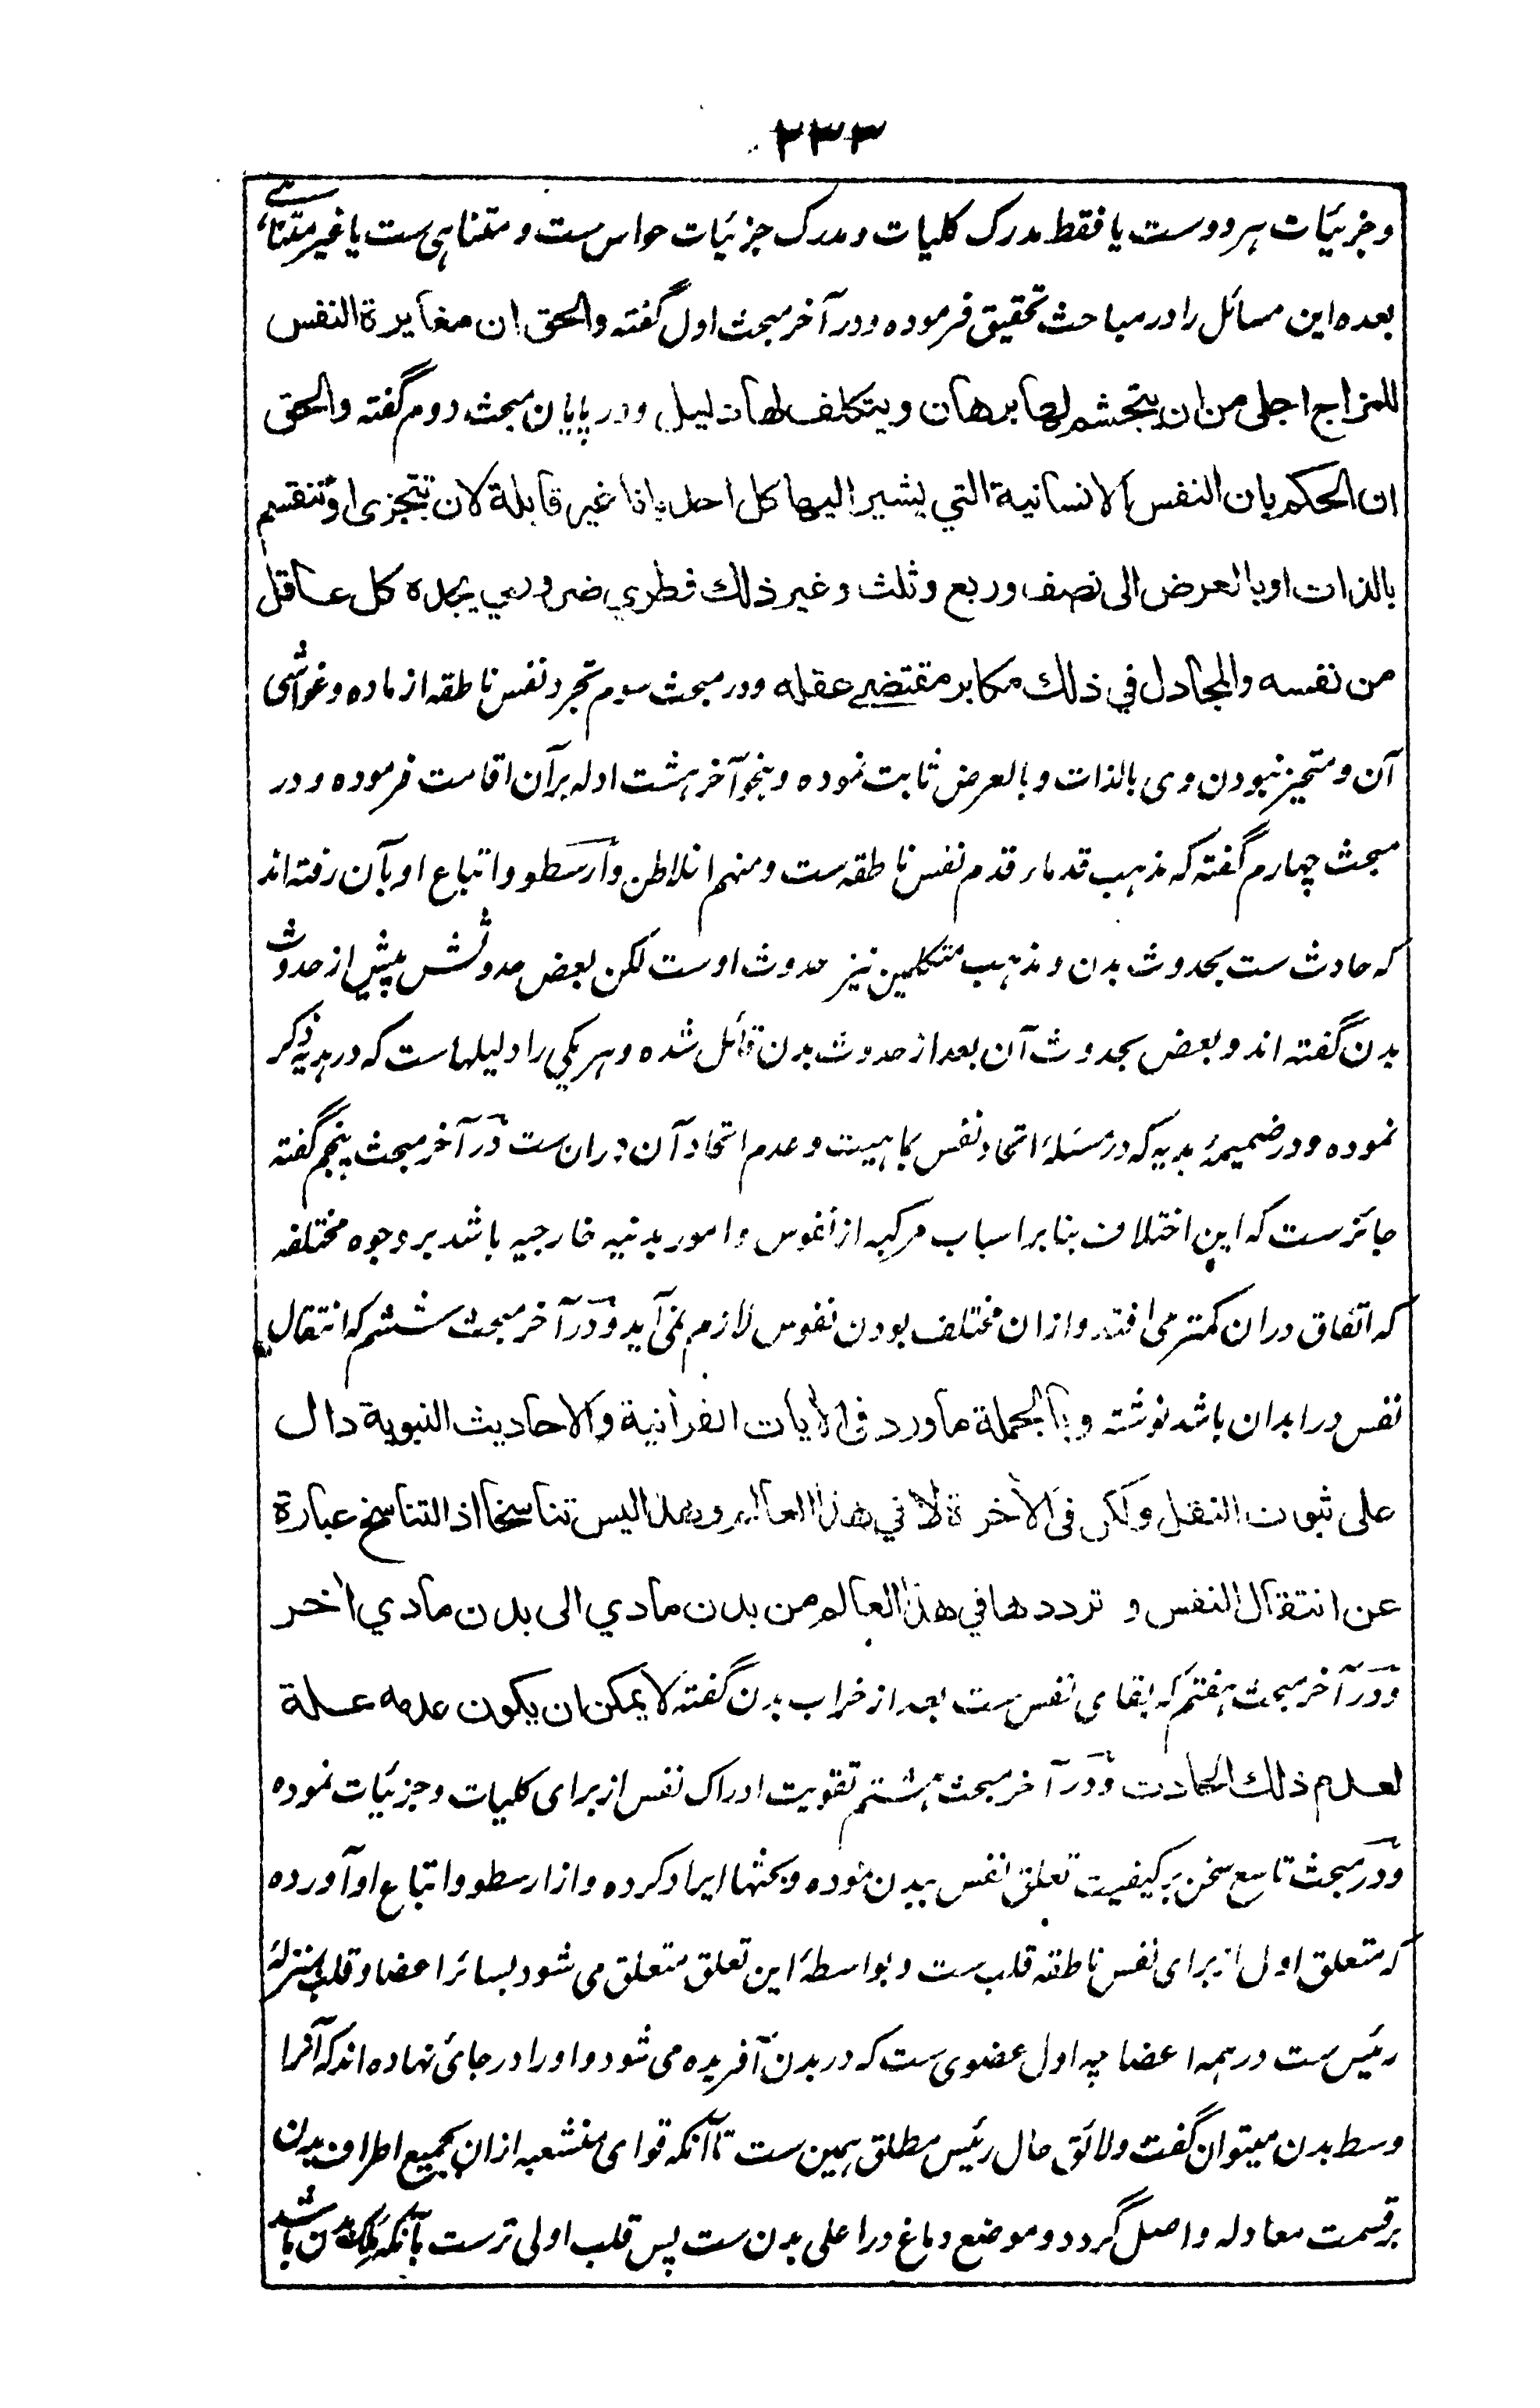 ۲۳۳
وجزئیات ہر دوست یا فقط مدرک کلیات و مدرک جزئیات حواس ست و متناہی ست یا غیر متناہے
بعدہ این مسائل را در مباحث تحقیق فرمودہ و در آخر مبحث اول گفتہ والحق ان مغایرة النفس
للمزاج اجلی من ان یتجشم لھا برھان ویتکلف لھا دلیل و در پایان مبحث دوم گفتہ والحق
ان الحکم بان النفس الانسانیة التي یشیر الیھا کل احد بانا غیر قابلة لان تتجزی او تنقسم
بالذات او بالعرض الی نصف و ربع و ثلث و غیر ذلك فطري ضروري یجده کل عاقل
من نفسه والمجادل في ذلك مکابر مقتضے عقله و در مبحث سوم تجرد نفس ناطقہ از مادہ و غواشی
آن و متحیز نبودن وی بالذات و بالعرض ثابت نمودہ و بنحو آخر ہشت ادلہ برآن اقامت فرمودہ و در
مبحث چہارم گفتہ کہ مذہب قدماء قدم نفس ناطقہ ست و منہم افلاطن و ارسطو و اتباع او بآن رفتہ اند
کہ حادث ست بحدوث بدن و مذہب متکلمین نیز حدوث اوست لکن بعض حدوثش پیش از حدوث
بدن گفتہ اند و بعض بحدوث آن بعد از حدوث بدن قائل شدہ و ہریکی را دلیلہاست کہ در ہدیہ ذکر
نمودہ و در ضمیمۂ ہدیہ کہ در مسئلۂ اتحاد نفس بماہیت و عدم اتحاد آن دران ست در آخر مبحث پنجم گفتہ
جائز ست کہ این اختلاف بنابر اسباب مرکبہ از نفوس و امور بدنیہ خارجیہ باشد بر وجوہ مختلفہ
کہ اتفاق دران کمتر می افتد و ازان مختلف بودن نفوس لازم نمی آید و در آخر مبحث ششم کہ انتقال
نفس در ابدان باشد نوشتہ و بالجملة ما ورد فی الآیات القرآنیة والاحادیث النبویة دال
علی ثبوت النقل ولکن فی الآخرة لا في هذا العالم وهذا لیس تناسخا اذ التناسخ عبارة
عن انتقال النفس و ترددها في هذا العالم من بدن مادي الی بدن مادي آخر
و در آخر مبحث ہفتم کہ بقای نفس ست بعد از خراب بدن گفتہ لا یمکن ان یکون عدمه علة
لعدم ذلك الحادث و در آخر مبحث ہشتم تقویت ادراک نفس از برای کلیات و جزئیات نمودہ
و در مبحث تاسع سخن بر کیفیت تعلق نفس ببدن نمودہ و بحثہا ایراد کردہ و از ارسطو و اتباع او آوردہ
کہ متعلق اول از برای نفس ناطقہ قلب ست و بواسطۂ این تعلق متعلق می شود بسائر اعضا و قلب بمنزلۂ
رئیس ست در ہمہ اعضا چہ اول عضوی ست کہ در بدن آفریدہ می شود و او را در جائ نہادہ اند کہ آنرا
وسط بدن میتوان گفت و لائق حال رئیس مطلق ہمین ست تا آنکہ قوای منشعبہ ازان بجمیع اطراف بدن
بر قسمت معادلہ واصل گردد و موضع دماغ در اعلی بدن ست پس قلب اولی ترست بآنکہ ملک بدن باشد